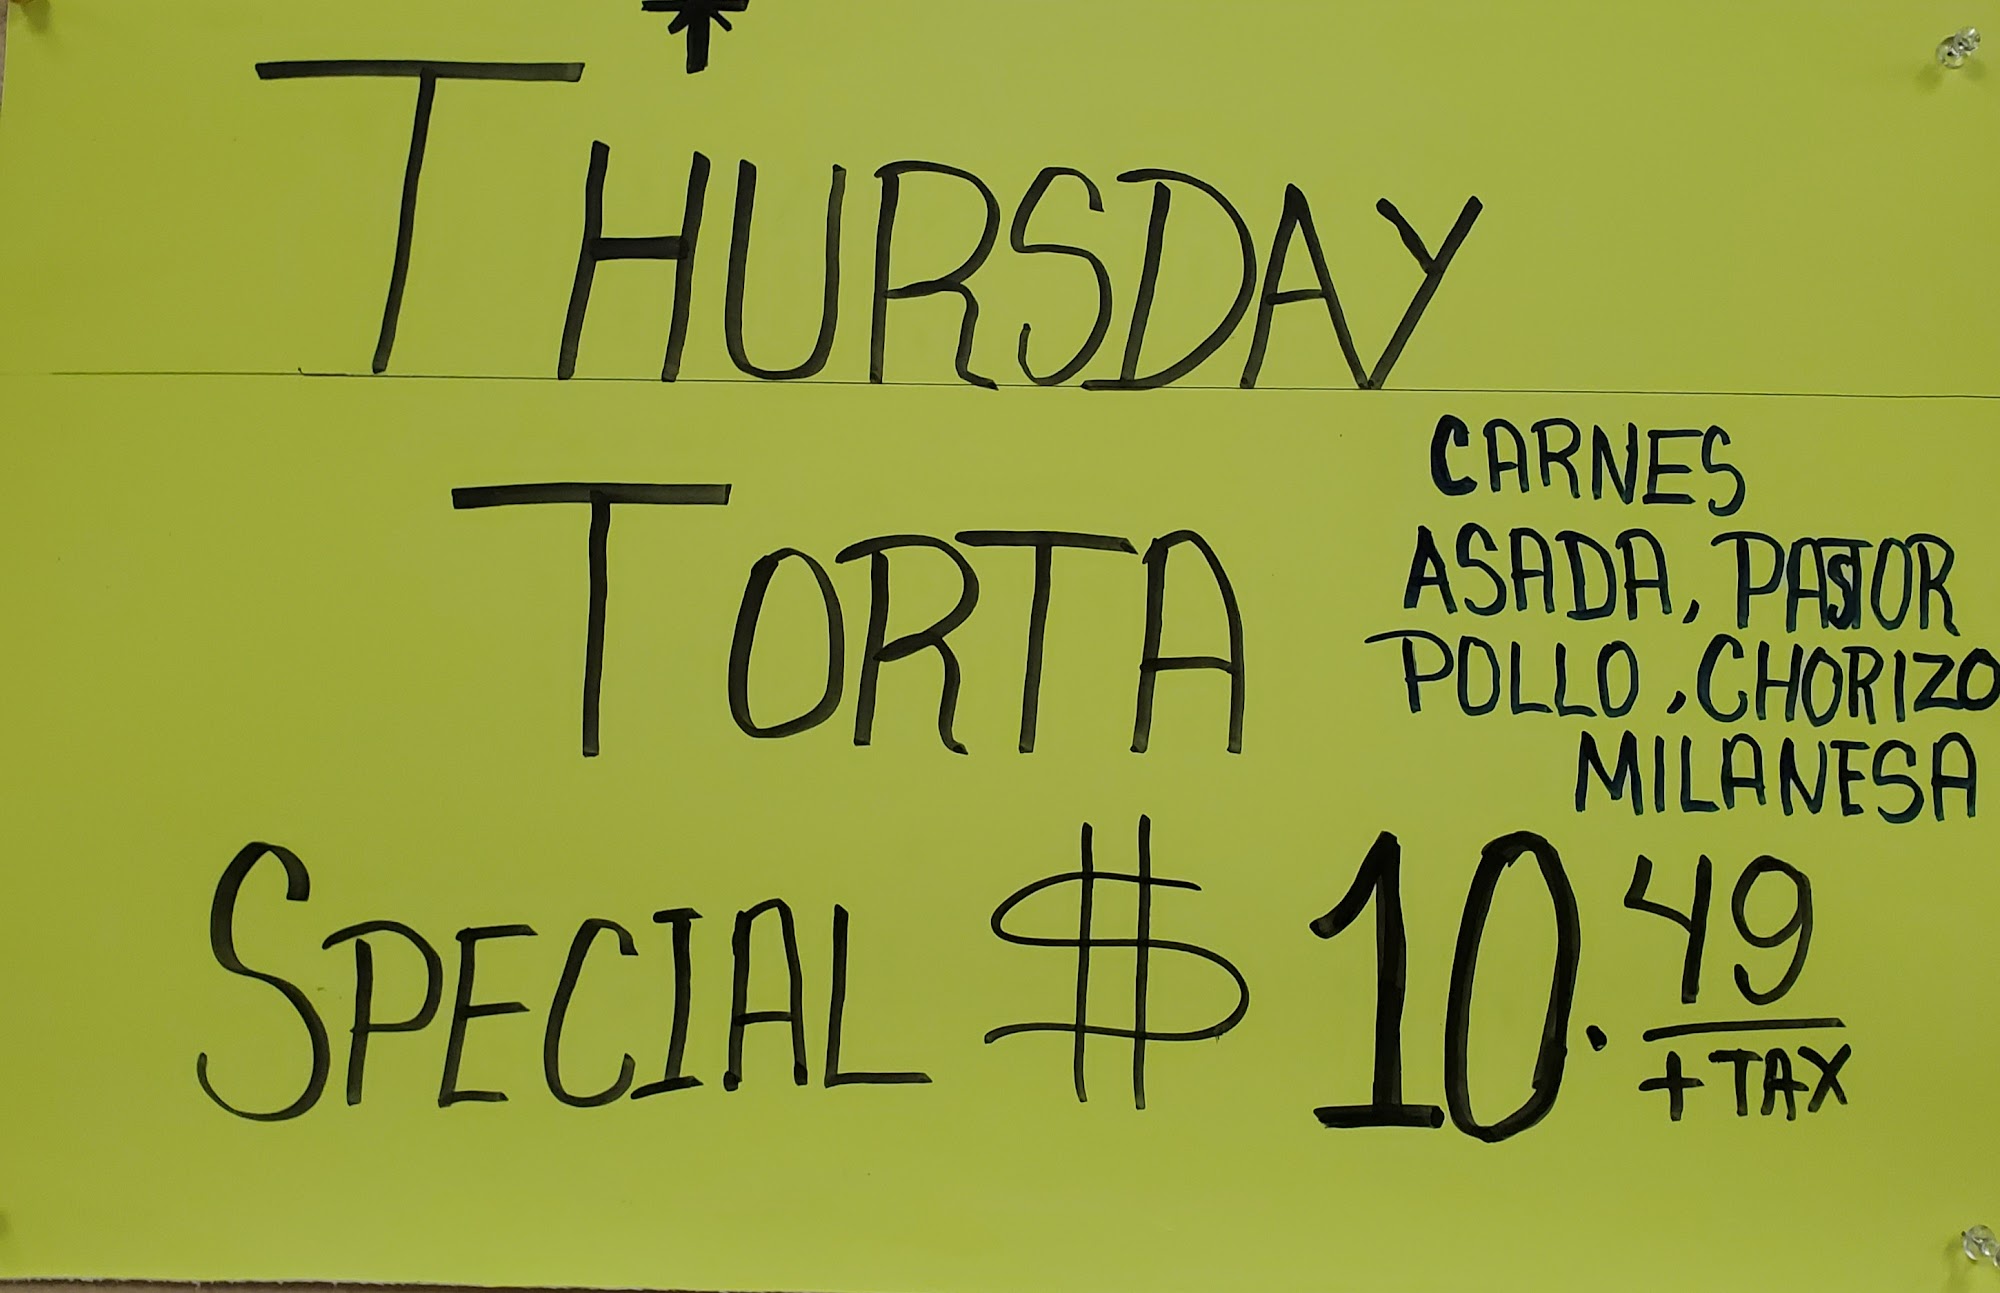 *
THURSDAY
TORTA
CARNES
ASADA, PASTOR
POLLO, CHORIZO
MILANESA
SPECIAL $10.49
+ TAX